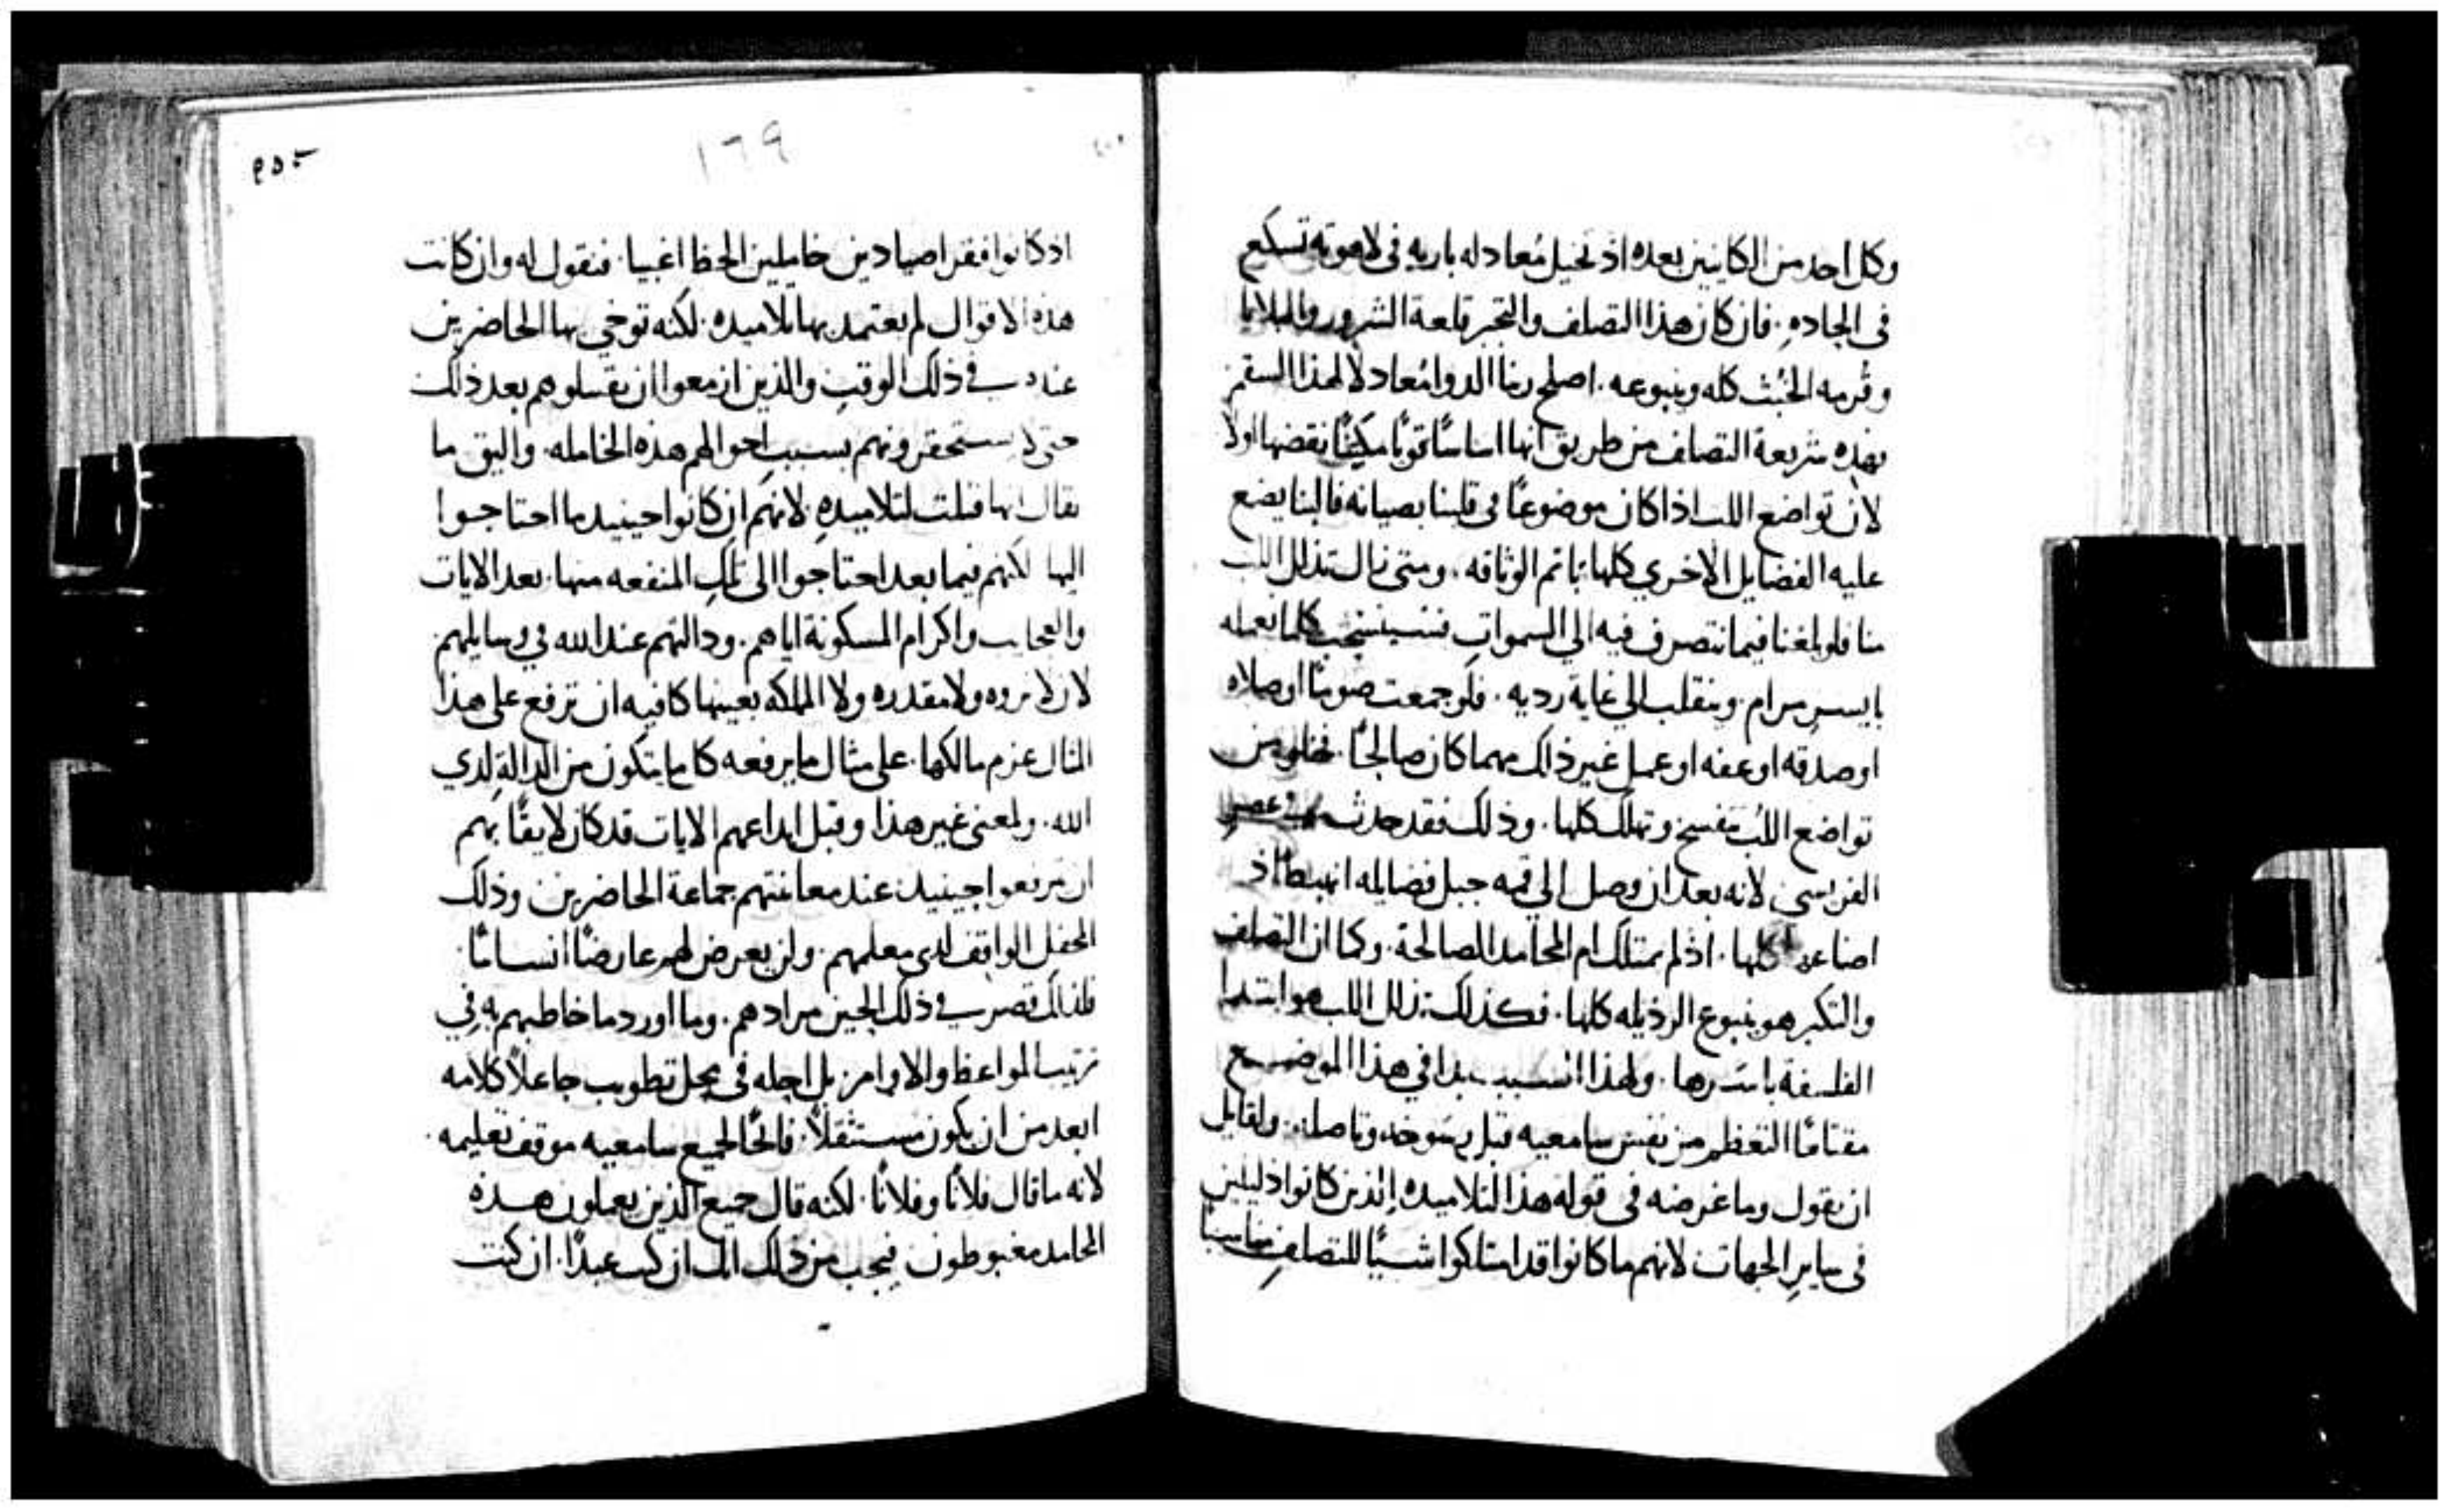 وكل احد من الكاينين بعده اذ تخيل مُعادله باريه فى لاهوته تسكع
فى الجاده. فان كان هذا التصلف والتجبر قلعة الشرور والبلايا
وقُرمه الخُبث كله وينبوعه. اصلح ربنا الدوا مُعادلاً لهذا السقم
بهذه شريعة التصلف من طريق انها اساسًا قويًا مكينًا نقضها اولاً
لان تواضع اللب اذا كان موضوعًا فى قلبنا بصيانه فالبنا يضع
عليه الفضايل الاخري كلها باتم الوثاقه. ومتى زال تذلل اللب
منا فلو بلغنا فيما نتصرف فيه الي السموات كلما نعمله
بايسر مرام. وينقلب الي غاية رديه. فلو جمعت صومًا او صلاه
او صدقه او عفه او عمل غير ذلك مهما كان صالحًا. من
تواضع اللُب تفسخ وتهلك كلها. وذلك فقد حدث
الفريسى لانه بعد ان وصل الي قمه جبل فضايله انهبط اذ
اضاعه كلها. اذ لم يمتلك ام المحامد الصالحة. وكما ان التصلف
والتكبر هو ينبوع الرذيله كلها. فكذلك تذلل اللب هو ابتدا
الفلسفة باسرها. ولهذا السبب بدا في هذا الموضع
التعظم من نفس سامعيه قبل ولقايل
ان يقول وما غرضه فى قوله هذا لتلاميذه الذين كانوا ذليلين
فى ساير الجهات لانهم ما كانوا قد امتلكوا شيًا للتصلف مناسبًا
٢٥٥
١٦٩
اذ كانوا فقرا صيادين خاملين الحظ اغبيا. فنقول له وان كانت
هذه الاقوال لم يعتمد بها تلاميذه. لكنه توخي بها الحاضرين
عنده في ذلك الوقت والذين ازمعوا ان يقبلوهم بعد ذلك
حتى لا يستحقرونهم بسبب احوالهم هذه الخامله. واليق ما
يقال انها قيلت لتلاميذه لانهم ان كانوا حينيذ ما احتاجوا
اليها لكنهم فيما بعد احتاجوا الى تلك المنفعه منها. بعد الايات
والعجايب واكرام المسكونة اياهم. ودالتهم عند الله في وسايلهم
لان لا ثروه ولا مقدره ولا المملكه بعينها كافيه ان ترفع على هذا
المثال عزم مالكها. على مثال ما يرفعه كلما يتكون من الدالة لدي
الله. ولمعنى غير هذا وقبل ابداعهم الايات قد كان لايقًا بهم
ان يترفعوا حينيذ عند معاينتهم جماعة الحاضرين وذلك
المحفل الواقف لدى معلمهم. ولن يعرض لهم عارضًا انسانيًا.
فلذلك قصر في ذلك الحين مرادهم. وما اورد ما خاطبهم به في
ترتيب المواعظ والاوامر بل اجله فى محل تطويب جاعلاً كلامه
ابعد من ان يكون مستثقلاً. فاتحًا لجميع سامعيه موقف تعليمه.
لانه ما قال فلانًا وفلانًا. لكنه قال جميع الذين يعملون هذه
المحامد مغبوطون فيجب من ذلك انك ان كنت عبدًا. ان كنت